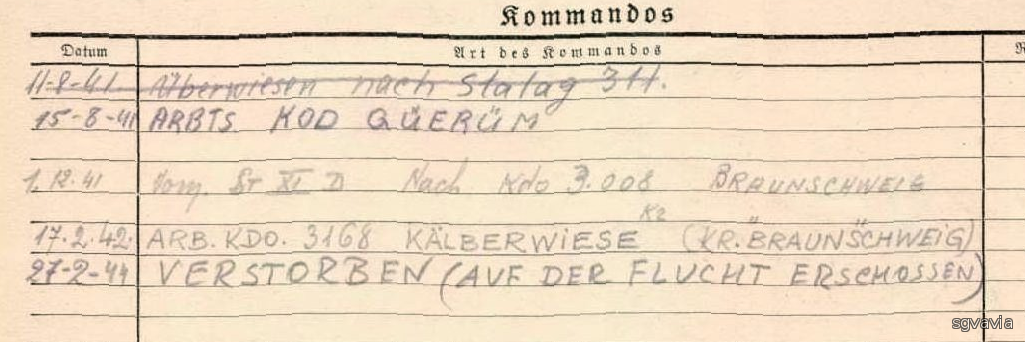 Kommandos
Datum Art des Kommandos R
11-8-41. Überwiesen nach Stalag 311.
15-8-41 ARBTS KOD QÜERÜM
1.12.41 Vom St XI D Nach Kdo 3.008 BRAUNSCHWEIG
Kr
17.2.42. ARB. KDO. 3168 KÄLBERWIESE (KR. BRAUNSCHWEIG)
27-2-44 VERSTORBEN (AUF DER FLUCHT ERSCHOSSEN)
sgvavia